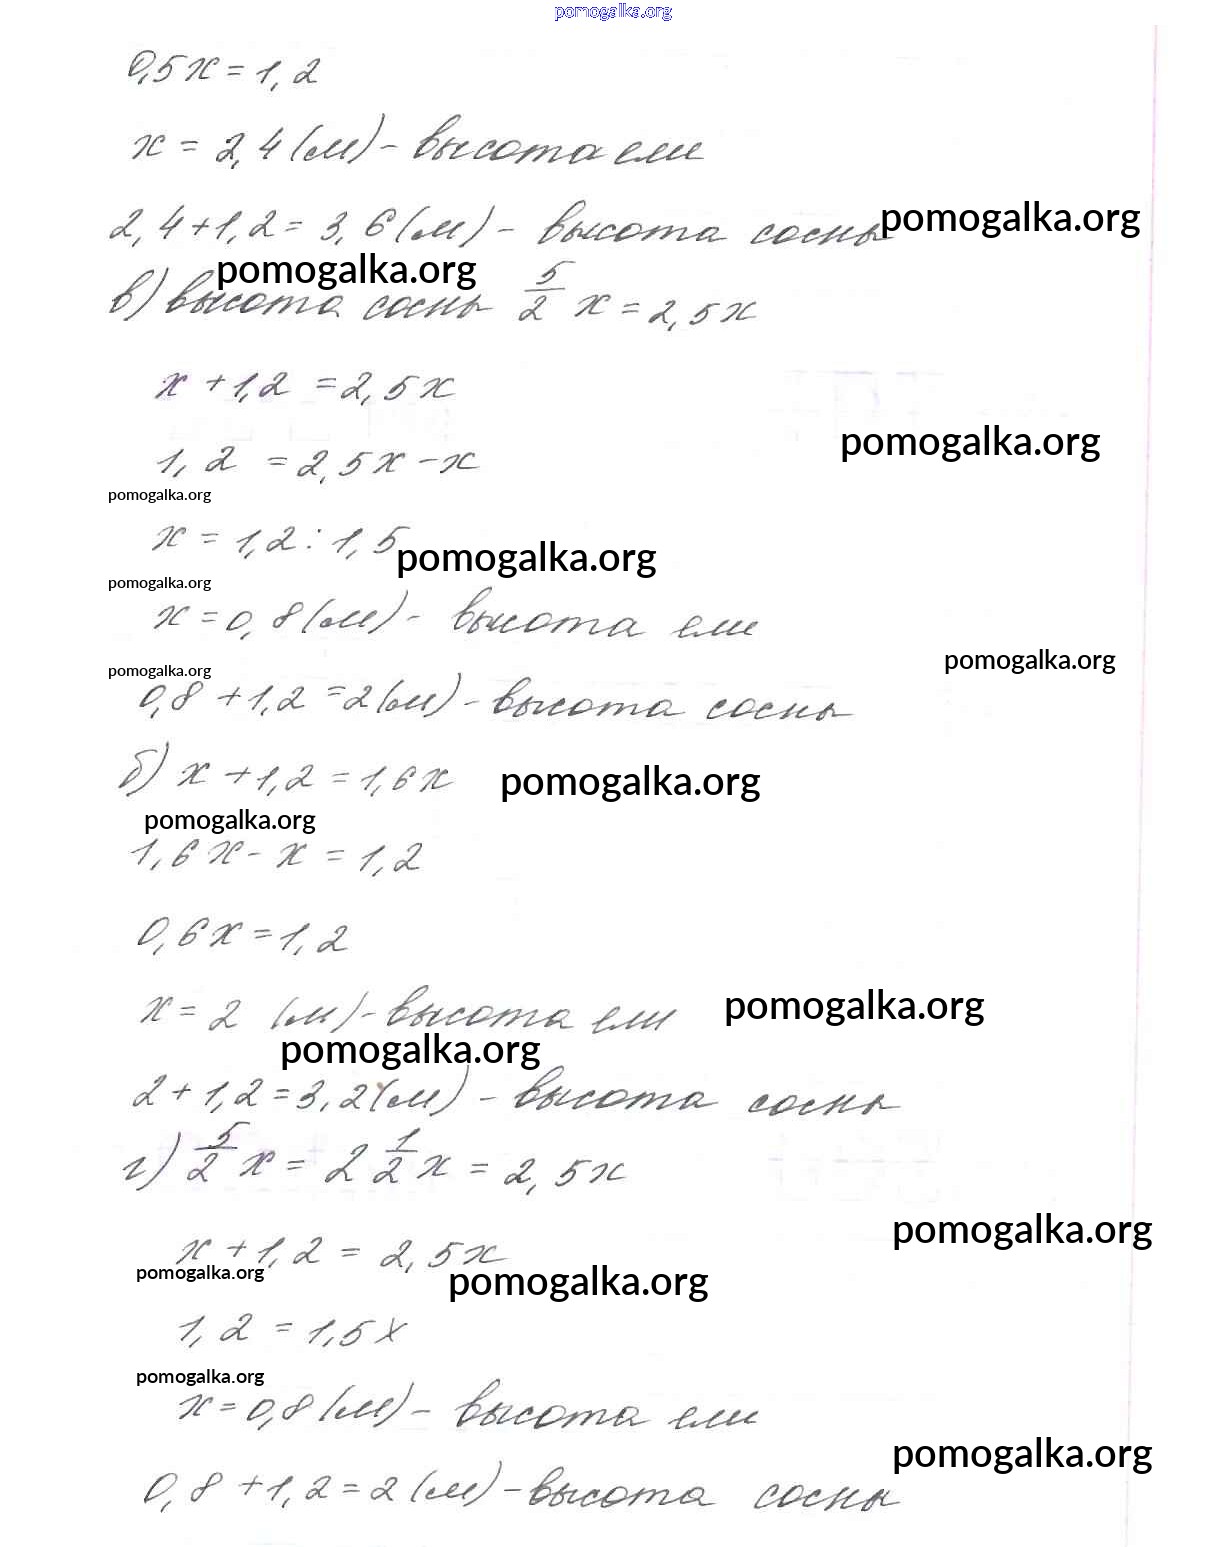 pomogalka.org
0,5x = 1,2
x = 2,4 (м) - высота ели
2,4 + 1,2 = 3,6 (м) - высота сосны pomogalka.org
pomogalka.org
в) высота сосны 5/2 x = 2,5x
x + 1,2 = 2,5x
pomogalka.org
1,2 = 2,5x - x
pomogalka.org
x = 1,2 : 1,5 pomogalka.org
pomogalka.org
x = 0,8 (м) - высота ели
pomogalka.org
pomogalka.org
0,8 + 1,2 = 2 (м) - высота сосны
б) x + 1,2 = 1,6x pomogalka.org
pomogalka.org
1,6x - x = 1,2
0,6x = 1,2
x = 2 (м) - высота ели pomogalka.org
pomogalka.org
2 + 1,2 = 3,2 (м) - высота сосны
г) 5/2 x = 2 1/2 x = 2,5x
pomogalka.org
x + 1,2 = 2,5x
pomogalka.org pomogalka.org
1,2 = 1,5x
pomogalka.org
x = 0,8 (м) - высота ели
pomogalka.org
0,8 + 1,2 = 2 (м) - высота сосны